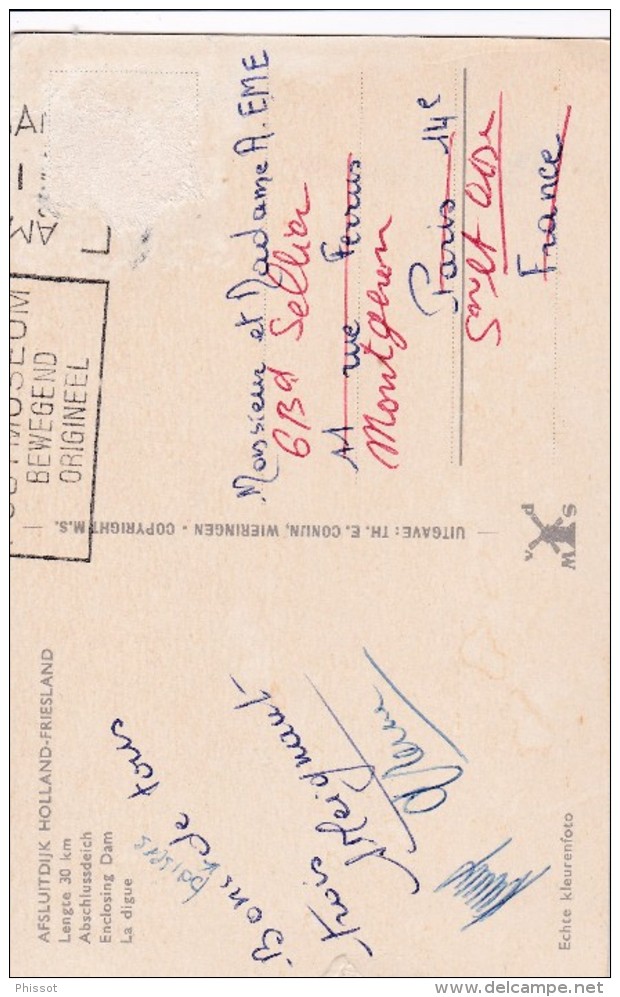 AFSLUITDIJK HOLLAND-FRIESLAND
Lengte 30 km
Abschlussdeich
Enclosing Dam
La digue
Bons
baisers
de tous
trois
Echte kleurenfoto
UITGAVE: TH. E. CONIJN, WIERINGEN - COPYRIGHT M.S.
W S
MUSEUM
BEWEGEND
ORIGINEEL
AM
Monsieur et Madame A. EME
6 Bd Sellier
11 rue Ferrus
Montgeron
Paris 14e
S et Oise
France
Phissot
delcampe.net